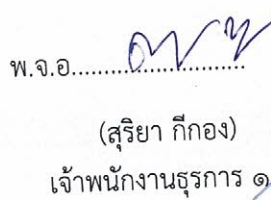 พ.จ.อ..............................
(สุริยา กีกอง)
เจ้าพนักงานธุรการ ๑